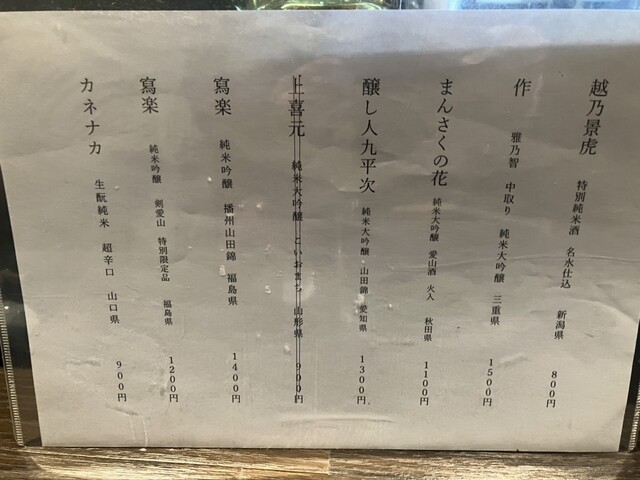 越乃景虎 特別純米酒 名水仕込 新潟県 800円
作 雅乃智 中取り 純米大吟醸 三重県 1500円
まんさくの花 純米大吟醸 愛山酒 火入 秋田県 1100円
醸し人九平次 純米大吟醸 山田錦 愛知県 1300円
上喜元 純米大吟醸 こいおまち 山形県 900円
寫楽 純米吟醸 播州山田錦 福島県 1400円
寫楽 純米吟醸 剣愛山 特別限定品 福島県 1200円
カネナカ 生酛純米 超辛口 山口県 900円